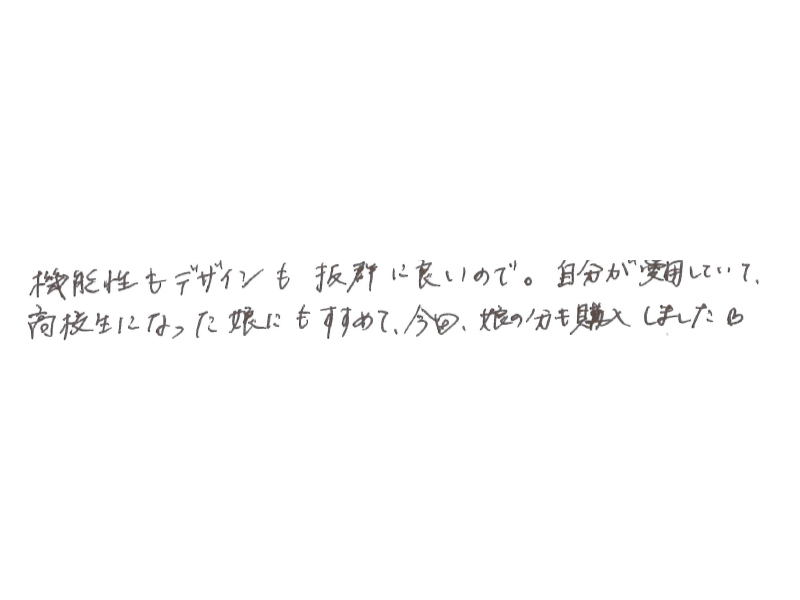 機能性もデザインも抜群に良いので。自分が愛用していて、
高校生になった娘にもすすめて、今回、娘の分も購入しました